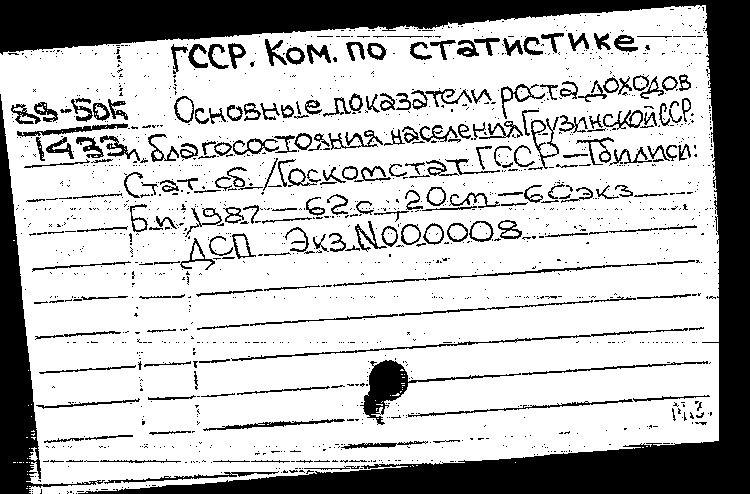 ГССР. Ком. по статистике.
88-5ок
1433
Основные показатели роста доходов
и благосостояния населения Грузинской ССР:
Стат. сб. /Госкомстат ГССР.—Тбилиси:
Б.и., 1987 — 62 с.; 20 см. — 60 экз
ДСП Экз. N000008
М.З.